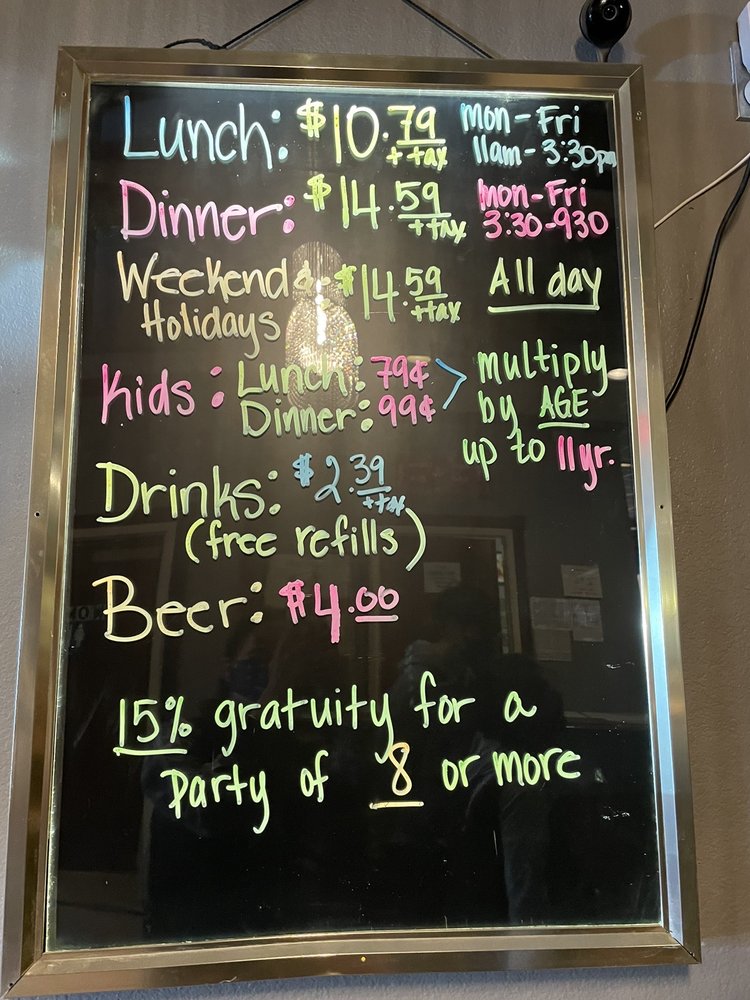 Lunch: $10.79 + tax Mon-Fri
11am-3:30pm
Dinner: $14.59 + tax Mon-Fri
3:30-930
Weekend & : $14.59 + tax All day
Holidays
Kids: Lunch: 79¢ > multiply
Dinner: 99¢ by AGE
up to 11yr.
Drinks: $2.39 + tax
(free refills)
Beer: $4.00
15% gratuity for a
Party of 8 or more